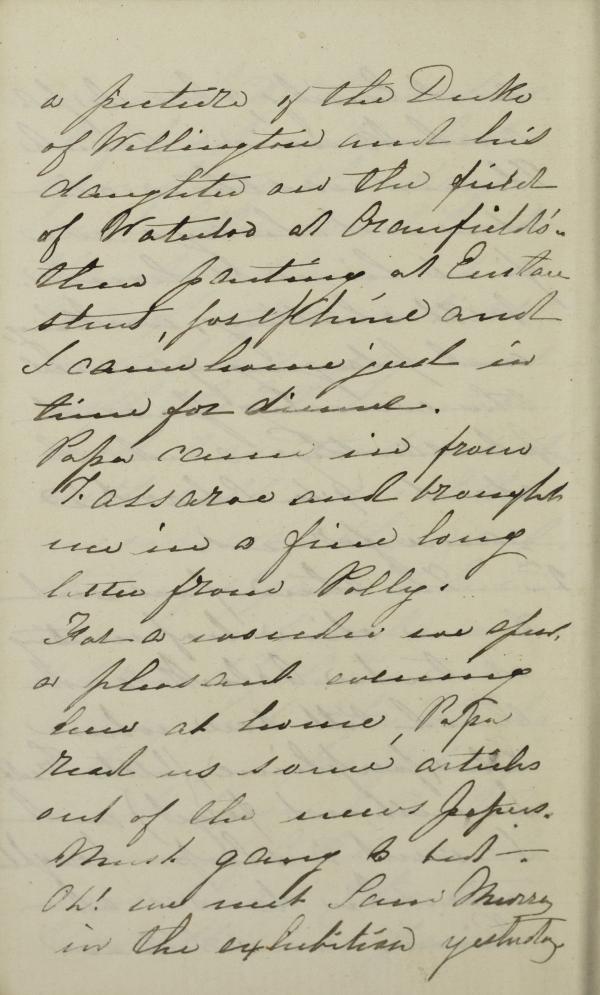 a picture of the Duke
of Wellington and his
daughter on the field
of Waterloo at Cranfield's.
then parting at Eustace
street, Josephine and
I came home just in
time for dinner.
Papa came in from
Fassaroe and brought
me in a fine long
letter from Polly.
For a wonder we spent
a pleasant evening
here at home, Papa
read us some articles
out of the news papers.
Must gang to bed —.
Oh! we met Sam Murray
in the exhibition yesterday